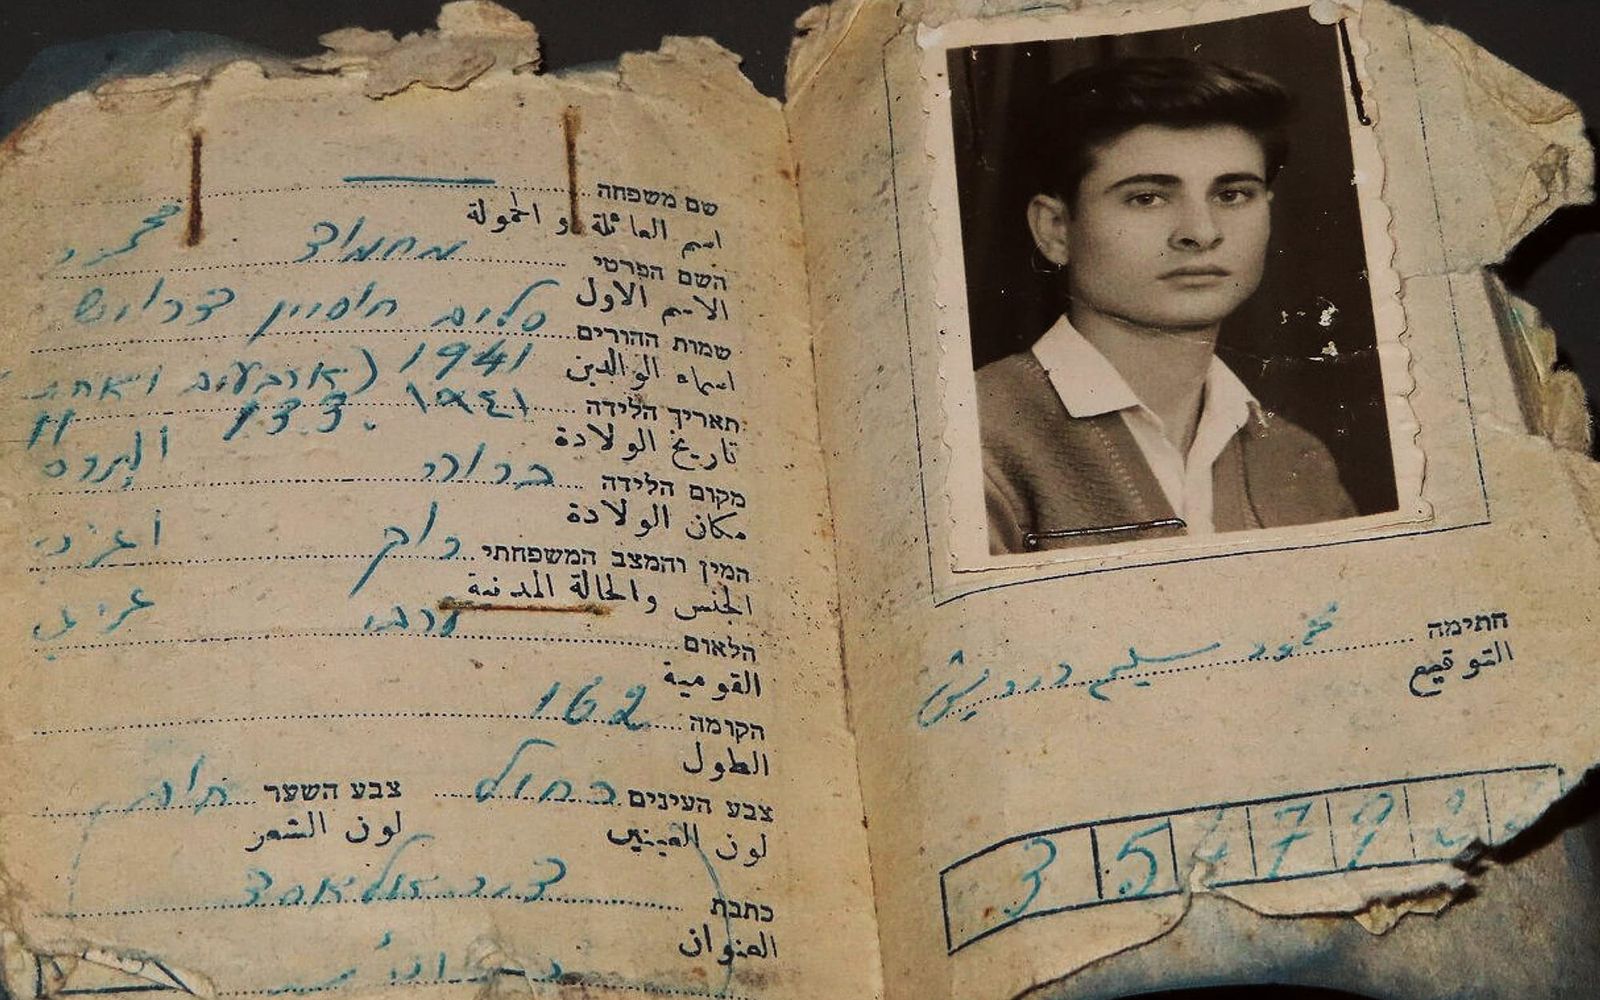 שם משפחה
اسم العائلة و الحمولة
השם הפרטי מחמוד محمود
الاسم الاول
שמות ההורים סלים חוסיין דרויש
اسماء الوالدين
1941 (ארבעים ואחת
תאריך הלידה ١٩٤١
تاريخ الولادة
מקום הלידה ברווה
مكان الولادة
המין והמצב המשפחתי רווק اعزب
الجنس والحالة المدنية
הלאום ערבי عربي
القومية
הקומה 162
الطول
צבע העינים כחול צבע השער חום
لون العينين لون الشعر
כתבת דיר אל אסד
العنوان
חתימה محمود سليم درويش
التوقيع
3 5 4 7 9 2